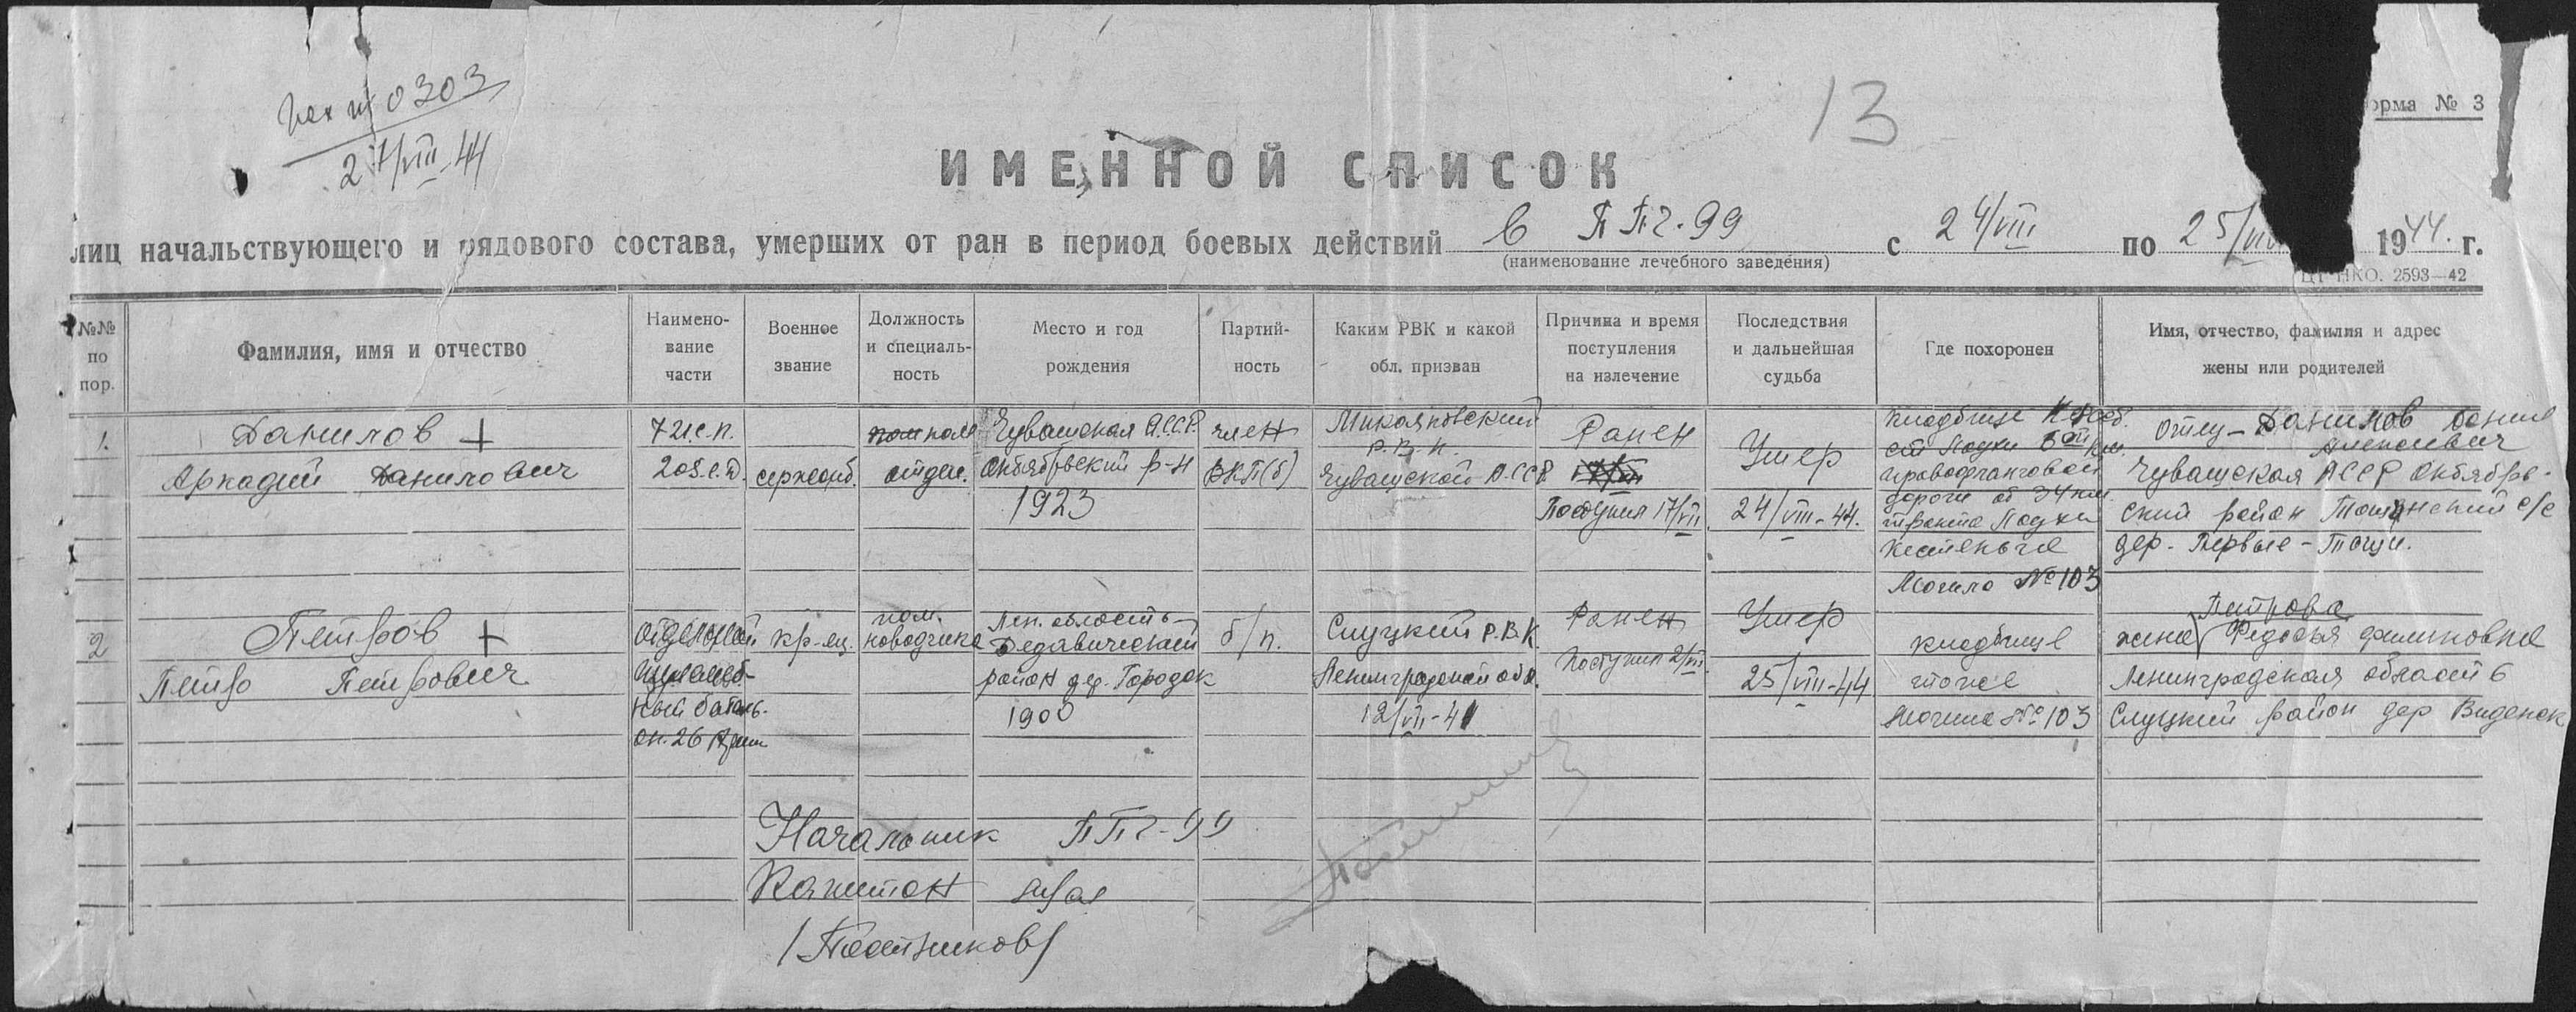 Исх № 0303
27/VIII-44
13
орма № 3
ИМЕННОЙ СПИСОК
лиц начальствующего и рядового состава, умерших от ран в период боевых действий в ППГ-99 с 24/VIII по 25/VIII 1944 г.
(наименование лечебного заведения)
ЦТ НКО. 2593—42
№№ по пор.
Фамилия, имя и отчество
Наимено-вание части
Военное звание
Должность и специаль-ность
Место и год рождения
Партий-ность
Каким РВК и какой обл. призван
Причина и время поступления на излечение
Последствия и дальнейшая судьба
Где похоронен
Имя, отчество, фамилия и адрес жены или родителей
1.
Данилов +
Аркадий Данилович
721с.п.
205.с.д.
сержант.
пом ком
отдел.
Чувашская АССР.
Октябрьский р-н
1923
член
ВКП(б)
Микояновский
Р.В.К.
Чувашской А.ССР
Ранен
17/VII
Поступил 17/VII
Умер
24/VIII-44.
кладбище
ст Лоухи км.
правофланговой
дороги от 34 км.
тракта Лоухи
Кестеньга
Могила № 103
Отец – Данилов Данил
Алексеевич
Чувашская АССР Октябрь-
ский район с/с
дер. Первые –
2
Петров +
Петр Петрович
Отдельный
баталь-
он. 26 Арм
кр-ец.
пом.
наводчика
Лен. область
Дедовический
район дер. Городок
1900
б/п.
Слуцкий Р.В.К
Ленинградской обл.
12/VII-41
Ранен
Поступил
Умер
25/VIII-44
кладбище
тоже
Могила № 103
Петрова
жена Федосья Филиповна
Ленинградская область
Слуцкий район дер
Начальник ППГ-99
Капитан